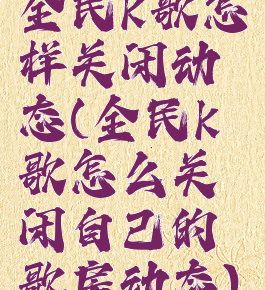 全民k歌怎
样关闭动
态(全民k
歌怎么关
闭自己的
歌房动态)